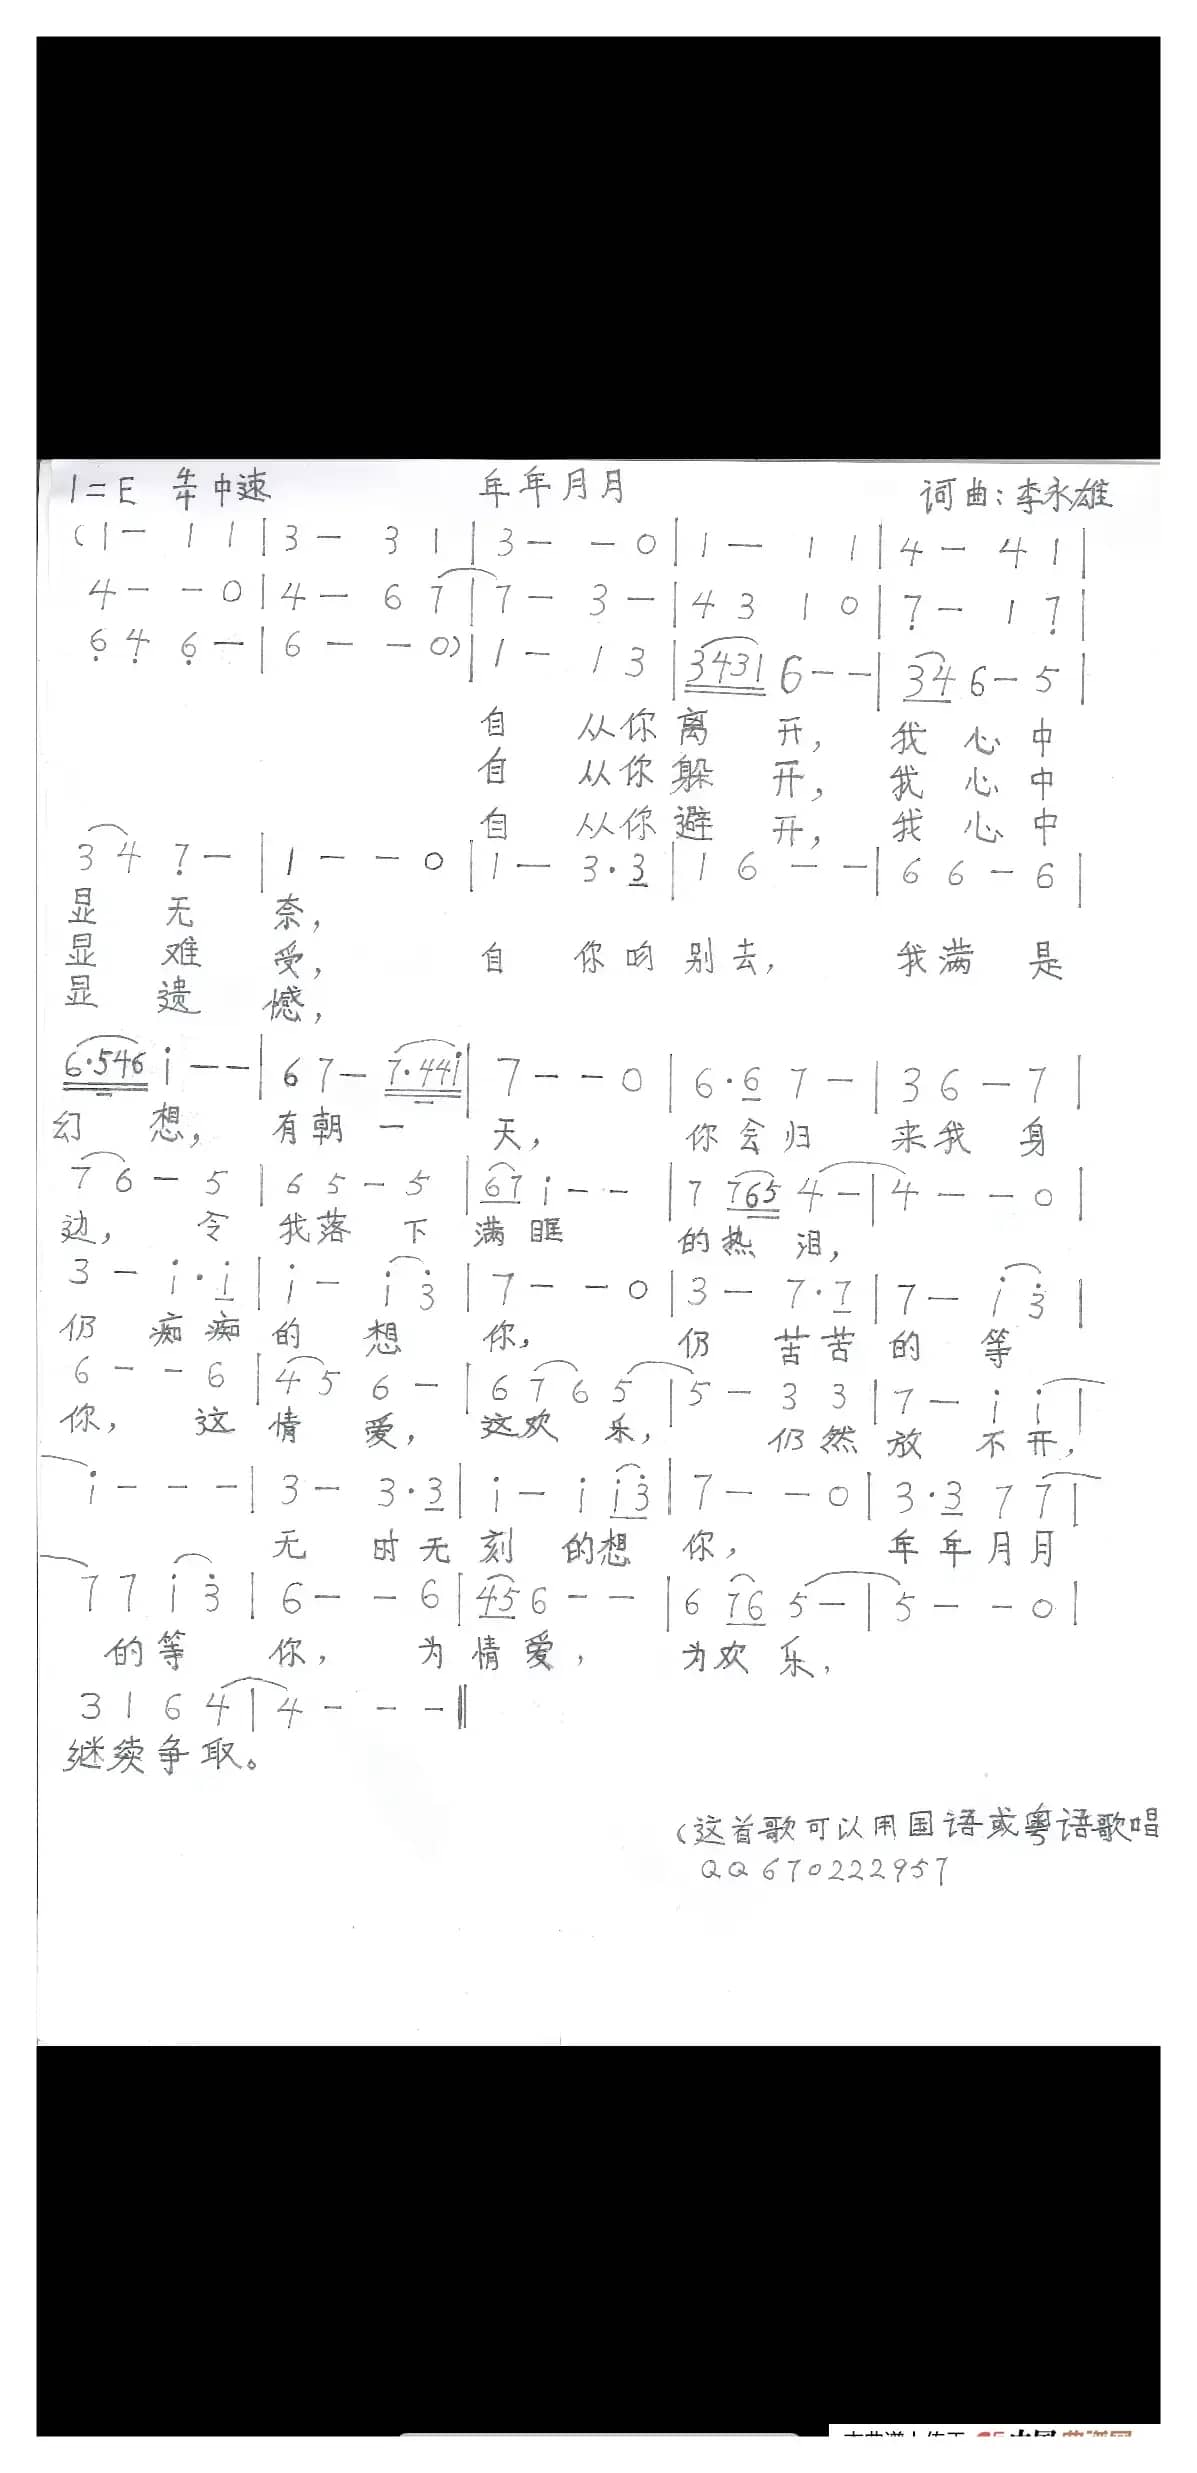 1=E 4/4 中速 年年月月 词曲:李永雄
(1 - 1 1 | 3 - 3 1 | 3 - - 0 | 1 - 1 1 | 4 - 4 1 |
4 - - 0 | 4 - 6 7 | 7 - 3 - | 4 3 1 0 | 7̣ - 1 7̣ |
6̣ 4̣ 6̣ - | 6 - - 0) | 1 - 1 3 | 3431 6 - - | 34 6 - 5 |
自 从你离 开, 我 心 中
自 从你躲 开, 我 心 中
自 从你避 开, 我 心 中
3 4 7̣ - | 1 - - 0 | 1 - 3·3 | 1 6 - - | 6 6 - 6 |
显 无 奈,
显 难 受, 自 你吻别去, 我满 是
显 遗 憾,
6·546 i - - | 6 7 - 7·44i | 7 - - 0 | 6·6 7 - | 3 6 - 7 |
幻 想, 有朝一 天, 你会归 来我 身
7 6 - 5 | 6 5 - 5 | 67 i - - | 7 765 4 - | 4 - - 0 |
边, 令 我落 下 满眶 的热 泪,
3 - i·i | i - i 3̇ | 7 - - 0 | 3 - 7·7 | 7 - i 3̇ |
仍 痴痴的 想 你, 仍 苦苦的 等
6 - - 6 | 4 5 6 - | 6 7 6 5 | 5 - 3 3 | 7 - i i |
你, 这 情 爱, 这欢 乐, 仍然放 不开,
i - - - | 3 - 3·3 | i - i i3̇ | 7 - - 0 | 3·3 7 7 |
无 时无刻 的想 你, 年年月月
7 7 i 3̇ | 6 - - 6 | 45 6 - - | 6 76 5 - | 5 - - 0 |
的等 你, 为情爱, 为欢 乐,
3 1 6 4 | 4 - - - ‖
继续争取。
(这首歌可以用国语或粤语歌唱
QQ670222957